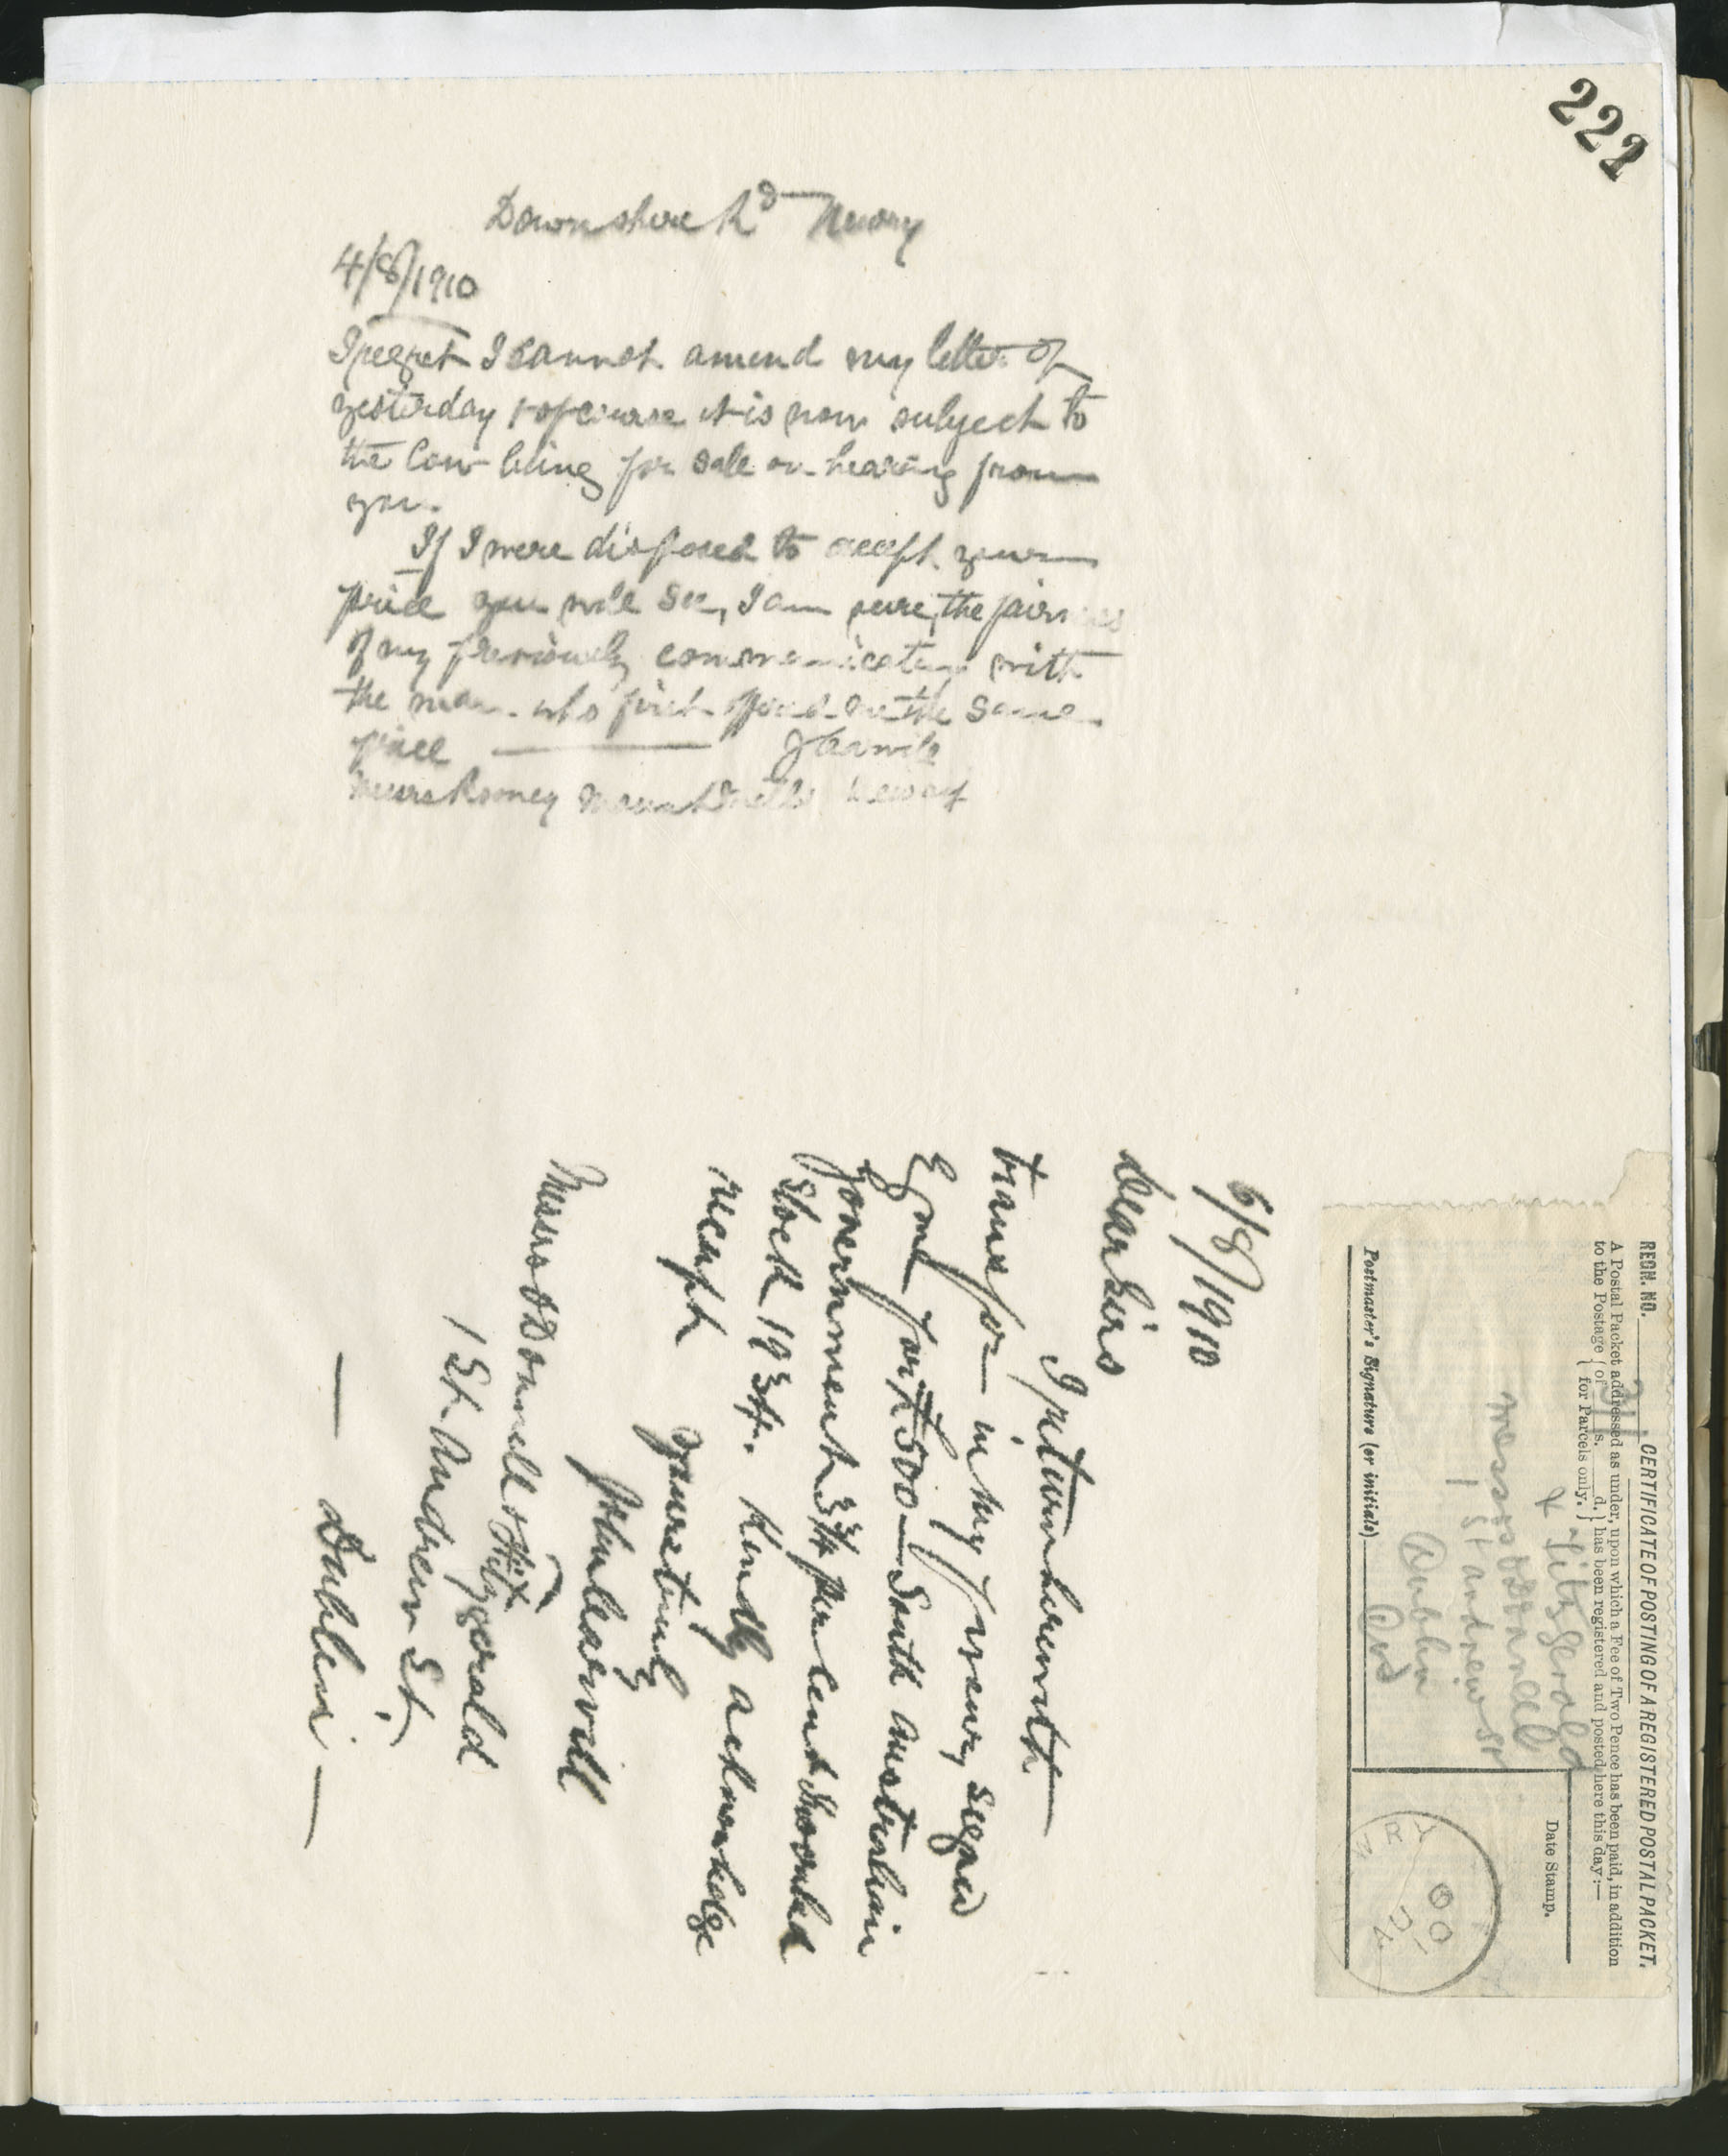 222
Downshire Rd Newry
4/8/1910
I regret I cannot amend my letter of
yesterday & of course it is now subject to
the Cow being for sale on hearing from
you.
If I were disposed to accept your
price you will see, I am sure, the fairness
of my previously communicating with
the man who first offered me the same
price
Messrs Rooney Newry
6/8/1910
Dear Sirs
I return herewith
transfer in my favour, signed
by me for £500 — South Australian
Government 3 3/4 per Cent Inscribed
Stock 19 Kindly acknowledge
receipt
Yours truly
Messrs O'Donnell & Fitzgerald
1 St. Andrew St.
— Dublin —
REGN. NO. CERTIFICATE OF POSTING OF A REGISTERED POSTAL PACKET.
A Postal Packet addressed as under, upon which a Fee of Two Pence has been paid, in addition
to the Postage { of s. d. } has been registered and posted here this day:—
{ for Parcels only. }
& Fitzgerald
Messrs O'Donnell
1 St Andrew St
Dublin
Date Stamp.
AU
10
Postmaster's Signature (or initials)